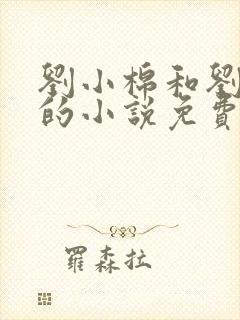 劉小棉和劉
的小說免費
羅森拉